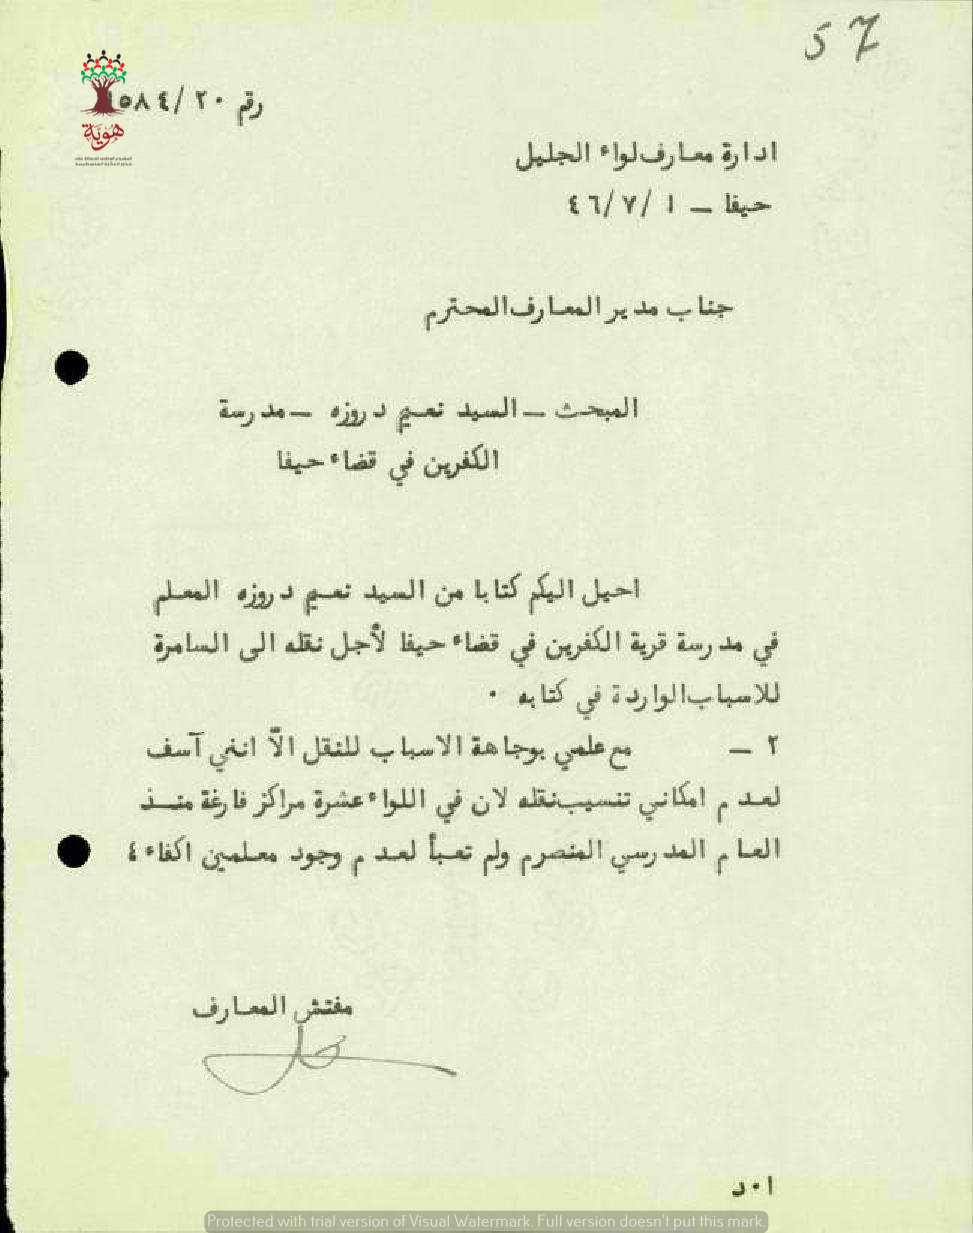 57
رقم ٢٠/ ١٥٨٤
هوية
ادارة معارف لواء الجليل
حيفا – ١ /٤٦/٧
جناب مدير المعارف المحترم
المبحث – السيد نعيم دروزه – مدرسة
الكفرين في قضاء حيفا
احيل اليكم كتابا من السيد نعيم دروزه المعلم
في مدرسة قرية الكفرين في قضاء حيفا لأجل نقله الى السامرة
للاسباب الواردة في كتابه ٠
٢ – مع علمي بوجاهة الاسباب للنقل الاّ انني آسف
لعدم امكاني تنسيب نقله لان في اللواء عشرة مراكز فارغة منذ
العام المدرسي المنصرم ولم تعبأ لعدم وجود معلمين اكفاء ٤
مفتش المعارف
ا ٠ د
Protected with trial version of Visual Watermark. Full version doesn't put this mark.